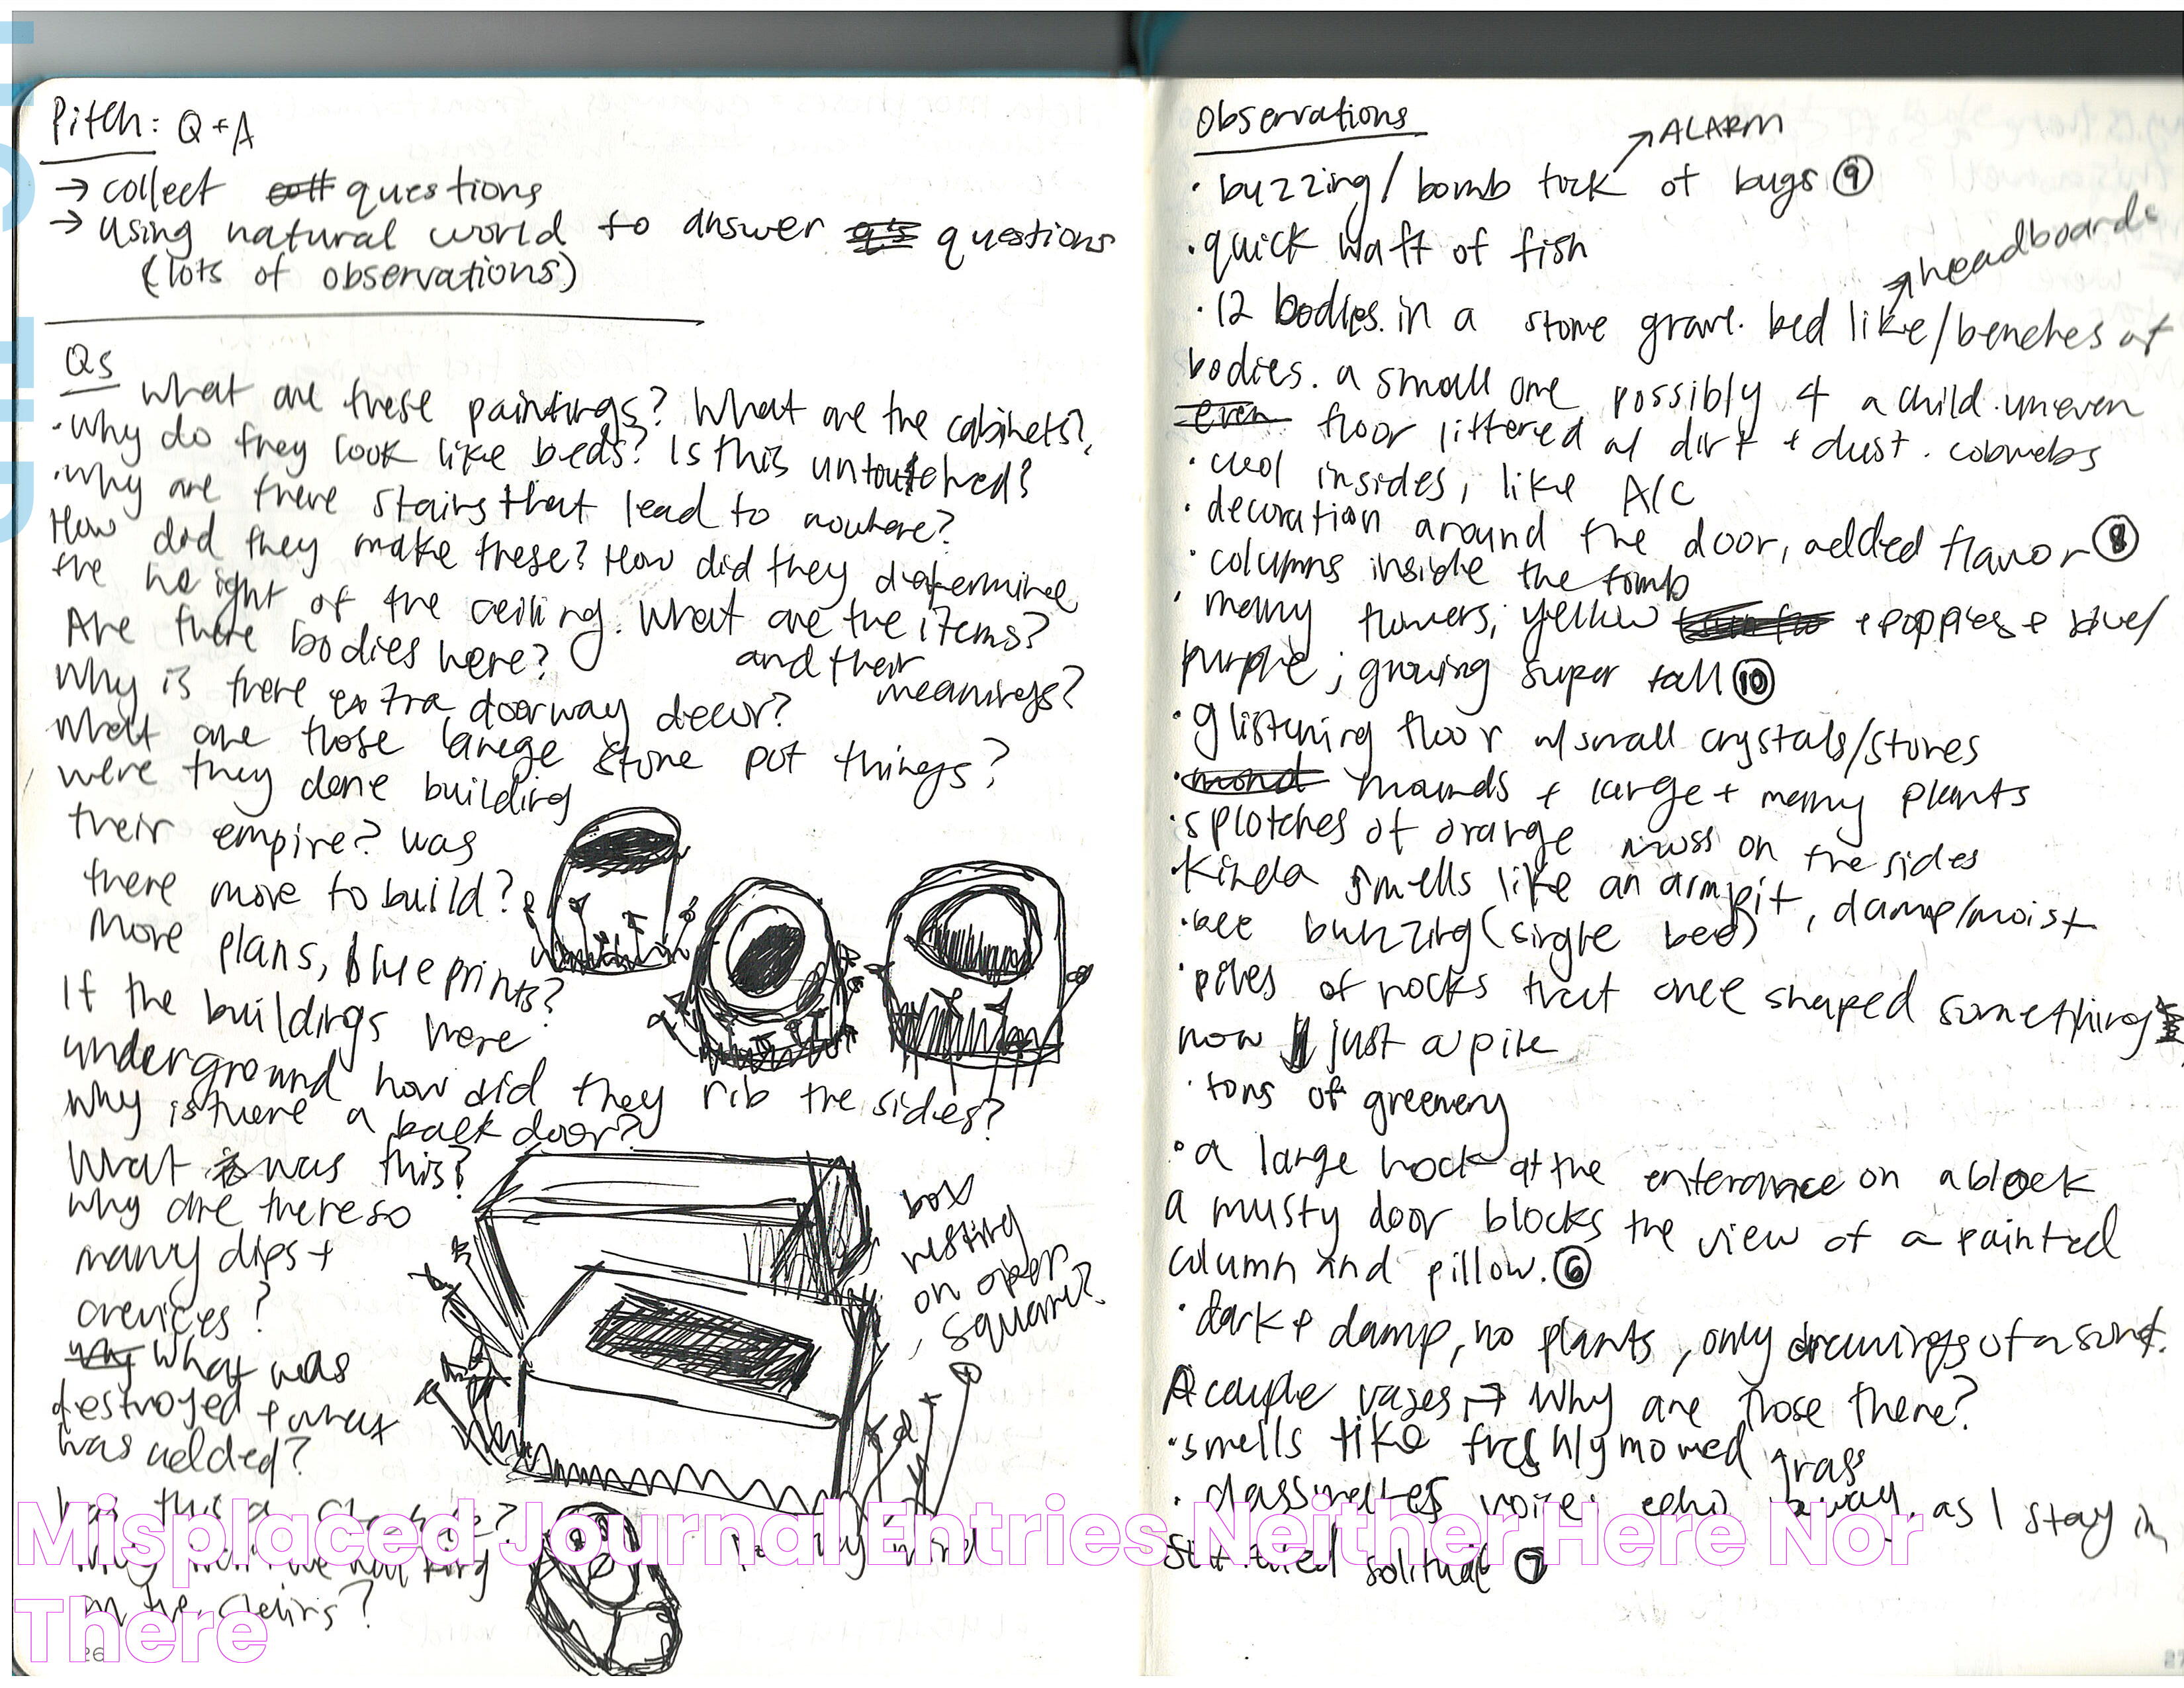 Pitch: Q + A
→ collect questions
→ using natural world to answer questions
(lots of observations)
Qs
What are these paintings? What are the cabinets?
·Why do they look like beds? Is this untoutched?
·Why are there stairs that lead to nowhere?
How did they make these? How did they determine
the height of the ceiling. What are the items?
and their meanings?
Are there bodies here?
Why is there extra doorway decor?
What are those large stone pot things?
Were they done building
their empire? was
there more to build?
More plans, blueprints?
If the buildings were
underground how did they rib the sides?
Why is there a back door?
What was this?
Why are there so
many dips +
crevices?
What was
destroyed + what
was added?
box
resting
on open
square?
Was this a
in the
26
Observations
→ ALARM
· buzzing/bomb tick of bugs ⑨
· quick waft of fish
→ headboards
· 12 bodies. in a stone grave. bed like/benches of
bodies. a small one possibly 4 a child. uneven
even floor littered w/ dirt + dust. cobwebs
· cool insides, like A/C
· decoration around the door, added flavor ⑧
· columns inside the tomb
· many flowers, yellow + poppies + blue/
purple; growing super tall ⑩
· glistening floor w/ small crystals/stones
· mond mounds + large + many plants
· splotches of orange moss on the sides
· Kinda smells like an armpit, damp/moist
· bee buzzing (single bee)
· piles of rocks that once shaped something
now just a pile
· tons of greenery
· a large rock at the enterance on a block
a musty door blocks the view of a painted
column and pillow. ⑥
· dark + damp, no plants, only drawings of a
A couple vases → Why are those there?
· smells like freshly mowed grass
· classmates voices echo away, as I stay in
solitude ⑦
27
Misplaced Journal Entries Neither Here Nor
There